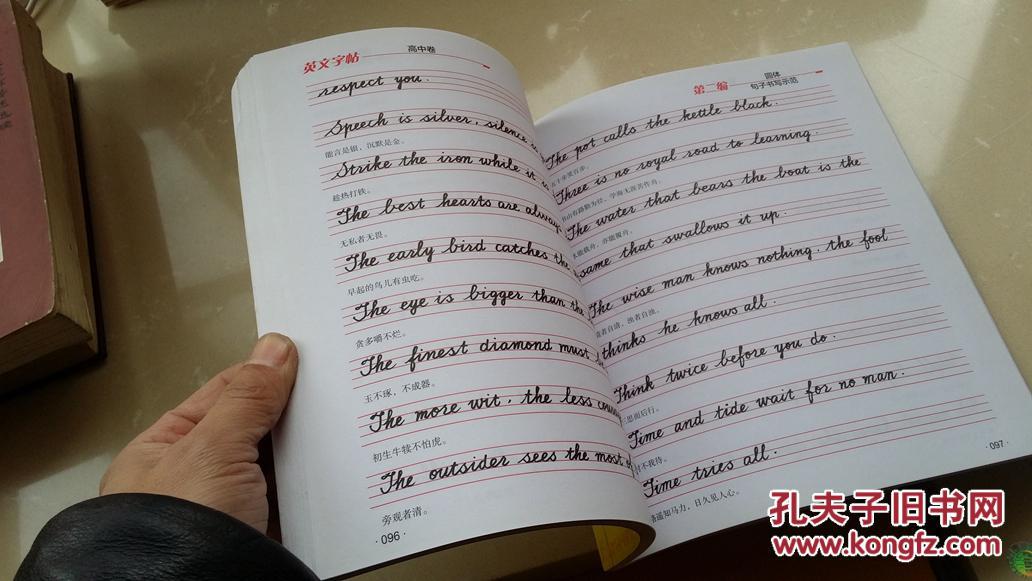 英文字帖 高中卷
respect you.
Speech is silver, silence
能言是银，沉默是金。
Strike the iron while it
趁热打铁。
The best hearts are always
无私者无畏。
The early bird catches the
早起的鸟儿有虫吃。
The eye is bigger than the
贪多嚼不烂。
The finest diamond must
玉不琢，不成器。
The more wit, the less
初生牛犊不怕虎。
The outsider sees the most
旁观者清。
·096·
第二编 圆体
句子书写示范
The pot calls the kettle black.
五十步笑百步。
Three is no royal road to learning.
书山有路勤为径，学海无涯苦作舟。
The water that bears the boat is the
水能载舟，亦能覆舟。
same that swallows it up.
The wise man knows nothing, the fool
清者自清，浊者自浊。
thinks he knows all.
Think twice before you do.
三思而后行。
Time and tide wait for no man.
时不我待。
Time tries all.
路遥知马力，日久见人心。
·097·
孔夫子旧书网
www.kongfz.com